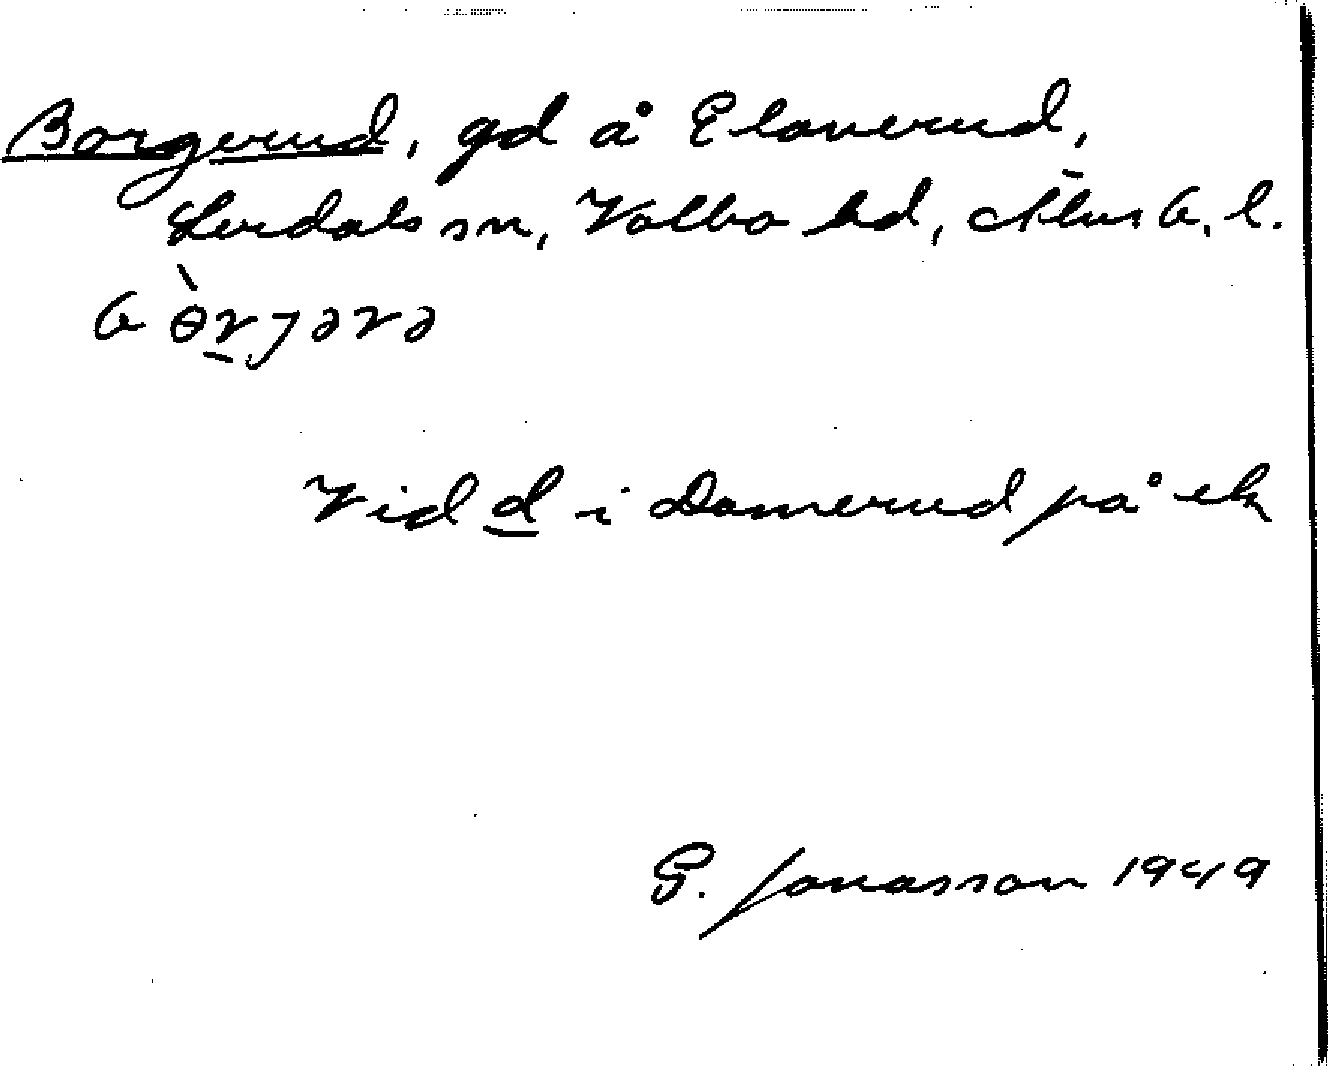 Borgerud, gd å Elaverud,
Lerdals sn, Valbo hd, Älvsb. l.
bòrjərə
Vid d i Damerud på ek
G. Jonasson 1949